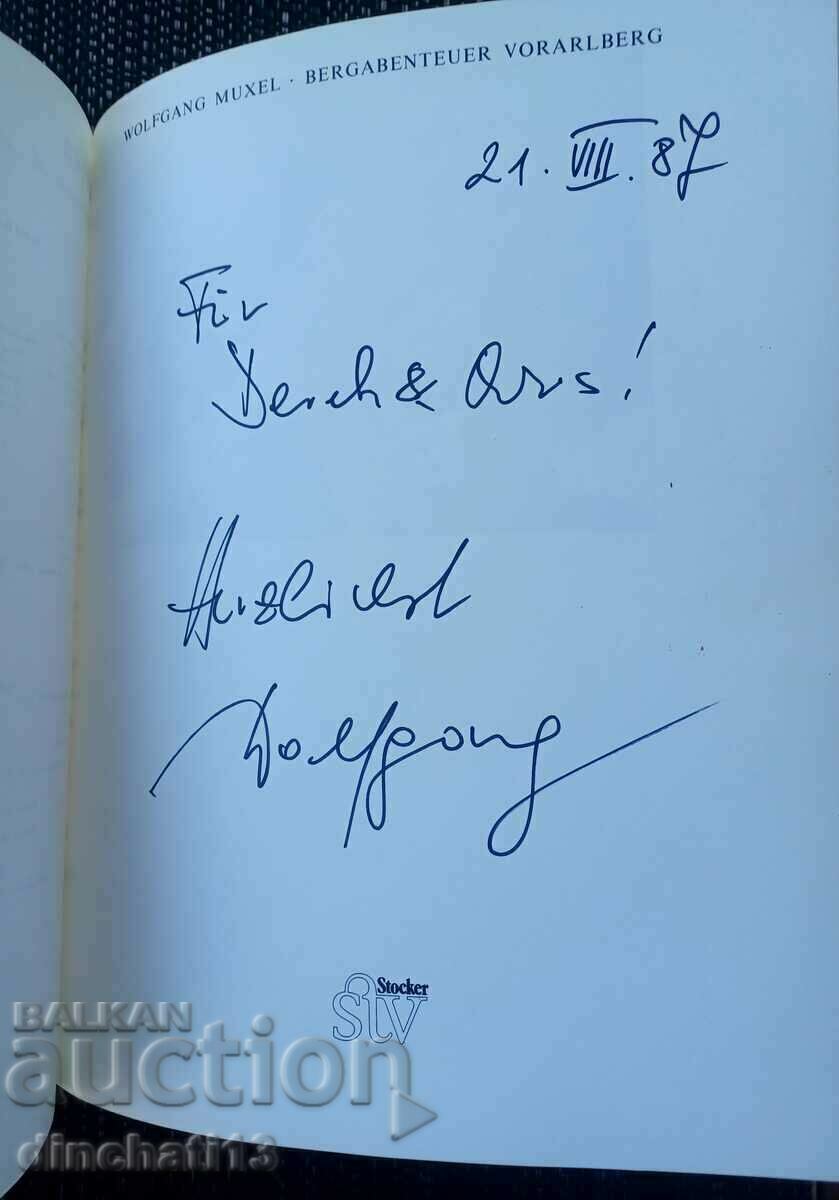 WOLFGANG MUXEL · BERGABENTEUER VORARLBERG
21. VIII. 87
Für
&  !
Herzlichst
Wolfgang
Stocker
STV
BALKAN
auction
dinchati13